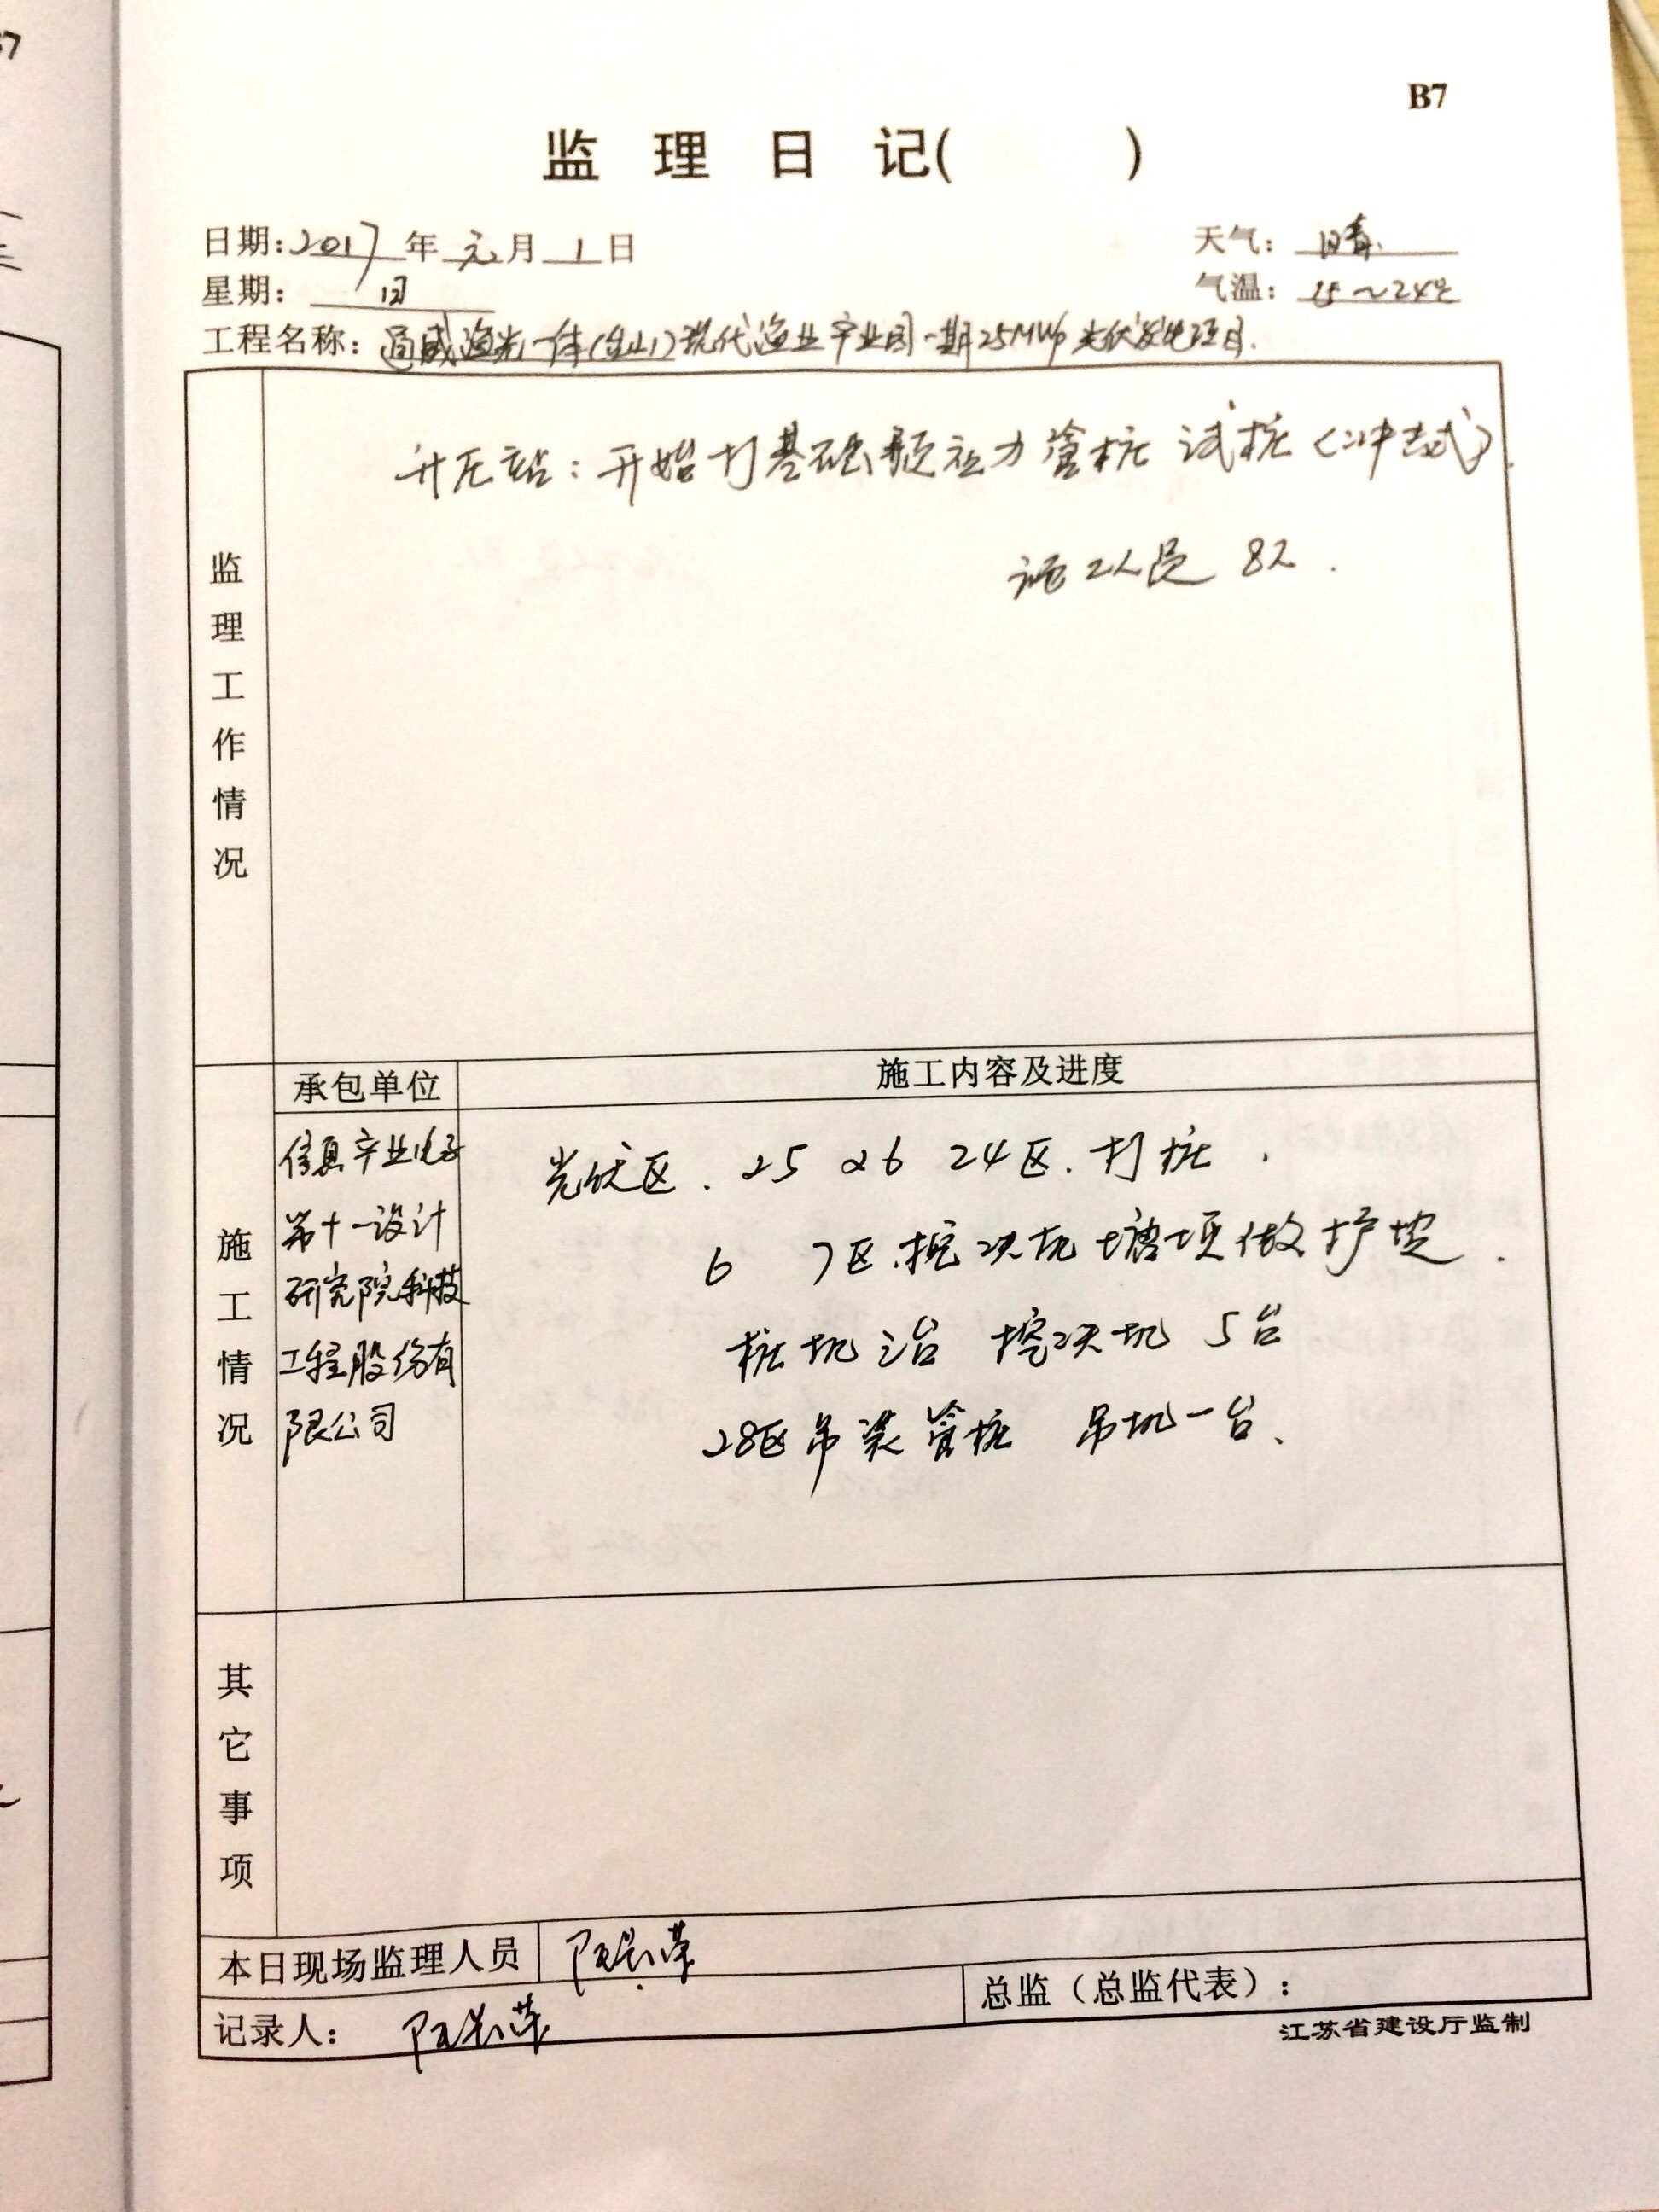 B7
监 理 日 记( )
日期:2017年元月1日
天气: 晴
星期: 日
气温: 15~24℃
工程名称: 通威渔光一体(金山)现代渔业产业园一期25MWp光伏发电项目.
监理工作情况
升压站:开始打基础预应力管桩 试桩(冲击式).
施工人员 8人.
承包单位
施工内容及进度
施工情况
信息产业电子
第十一设计
研究院科技
工程股份有
限公司
光伏区. 25 26 24区.打桩.
6 7区.挖 机塘埂做护坡.
桩机 台 挖 机 5台
28区吊装管桩 吊机一台、
其它事项
本日现场监理人员
总监(总监代表):
记录人:
江苏省建设厅监制